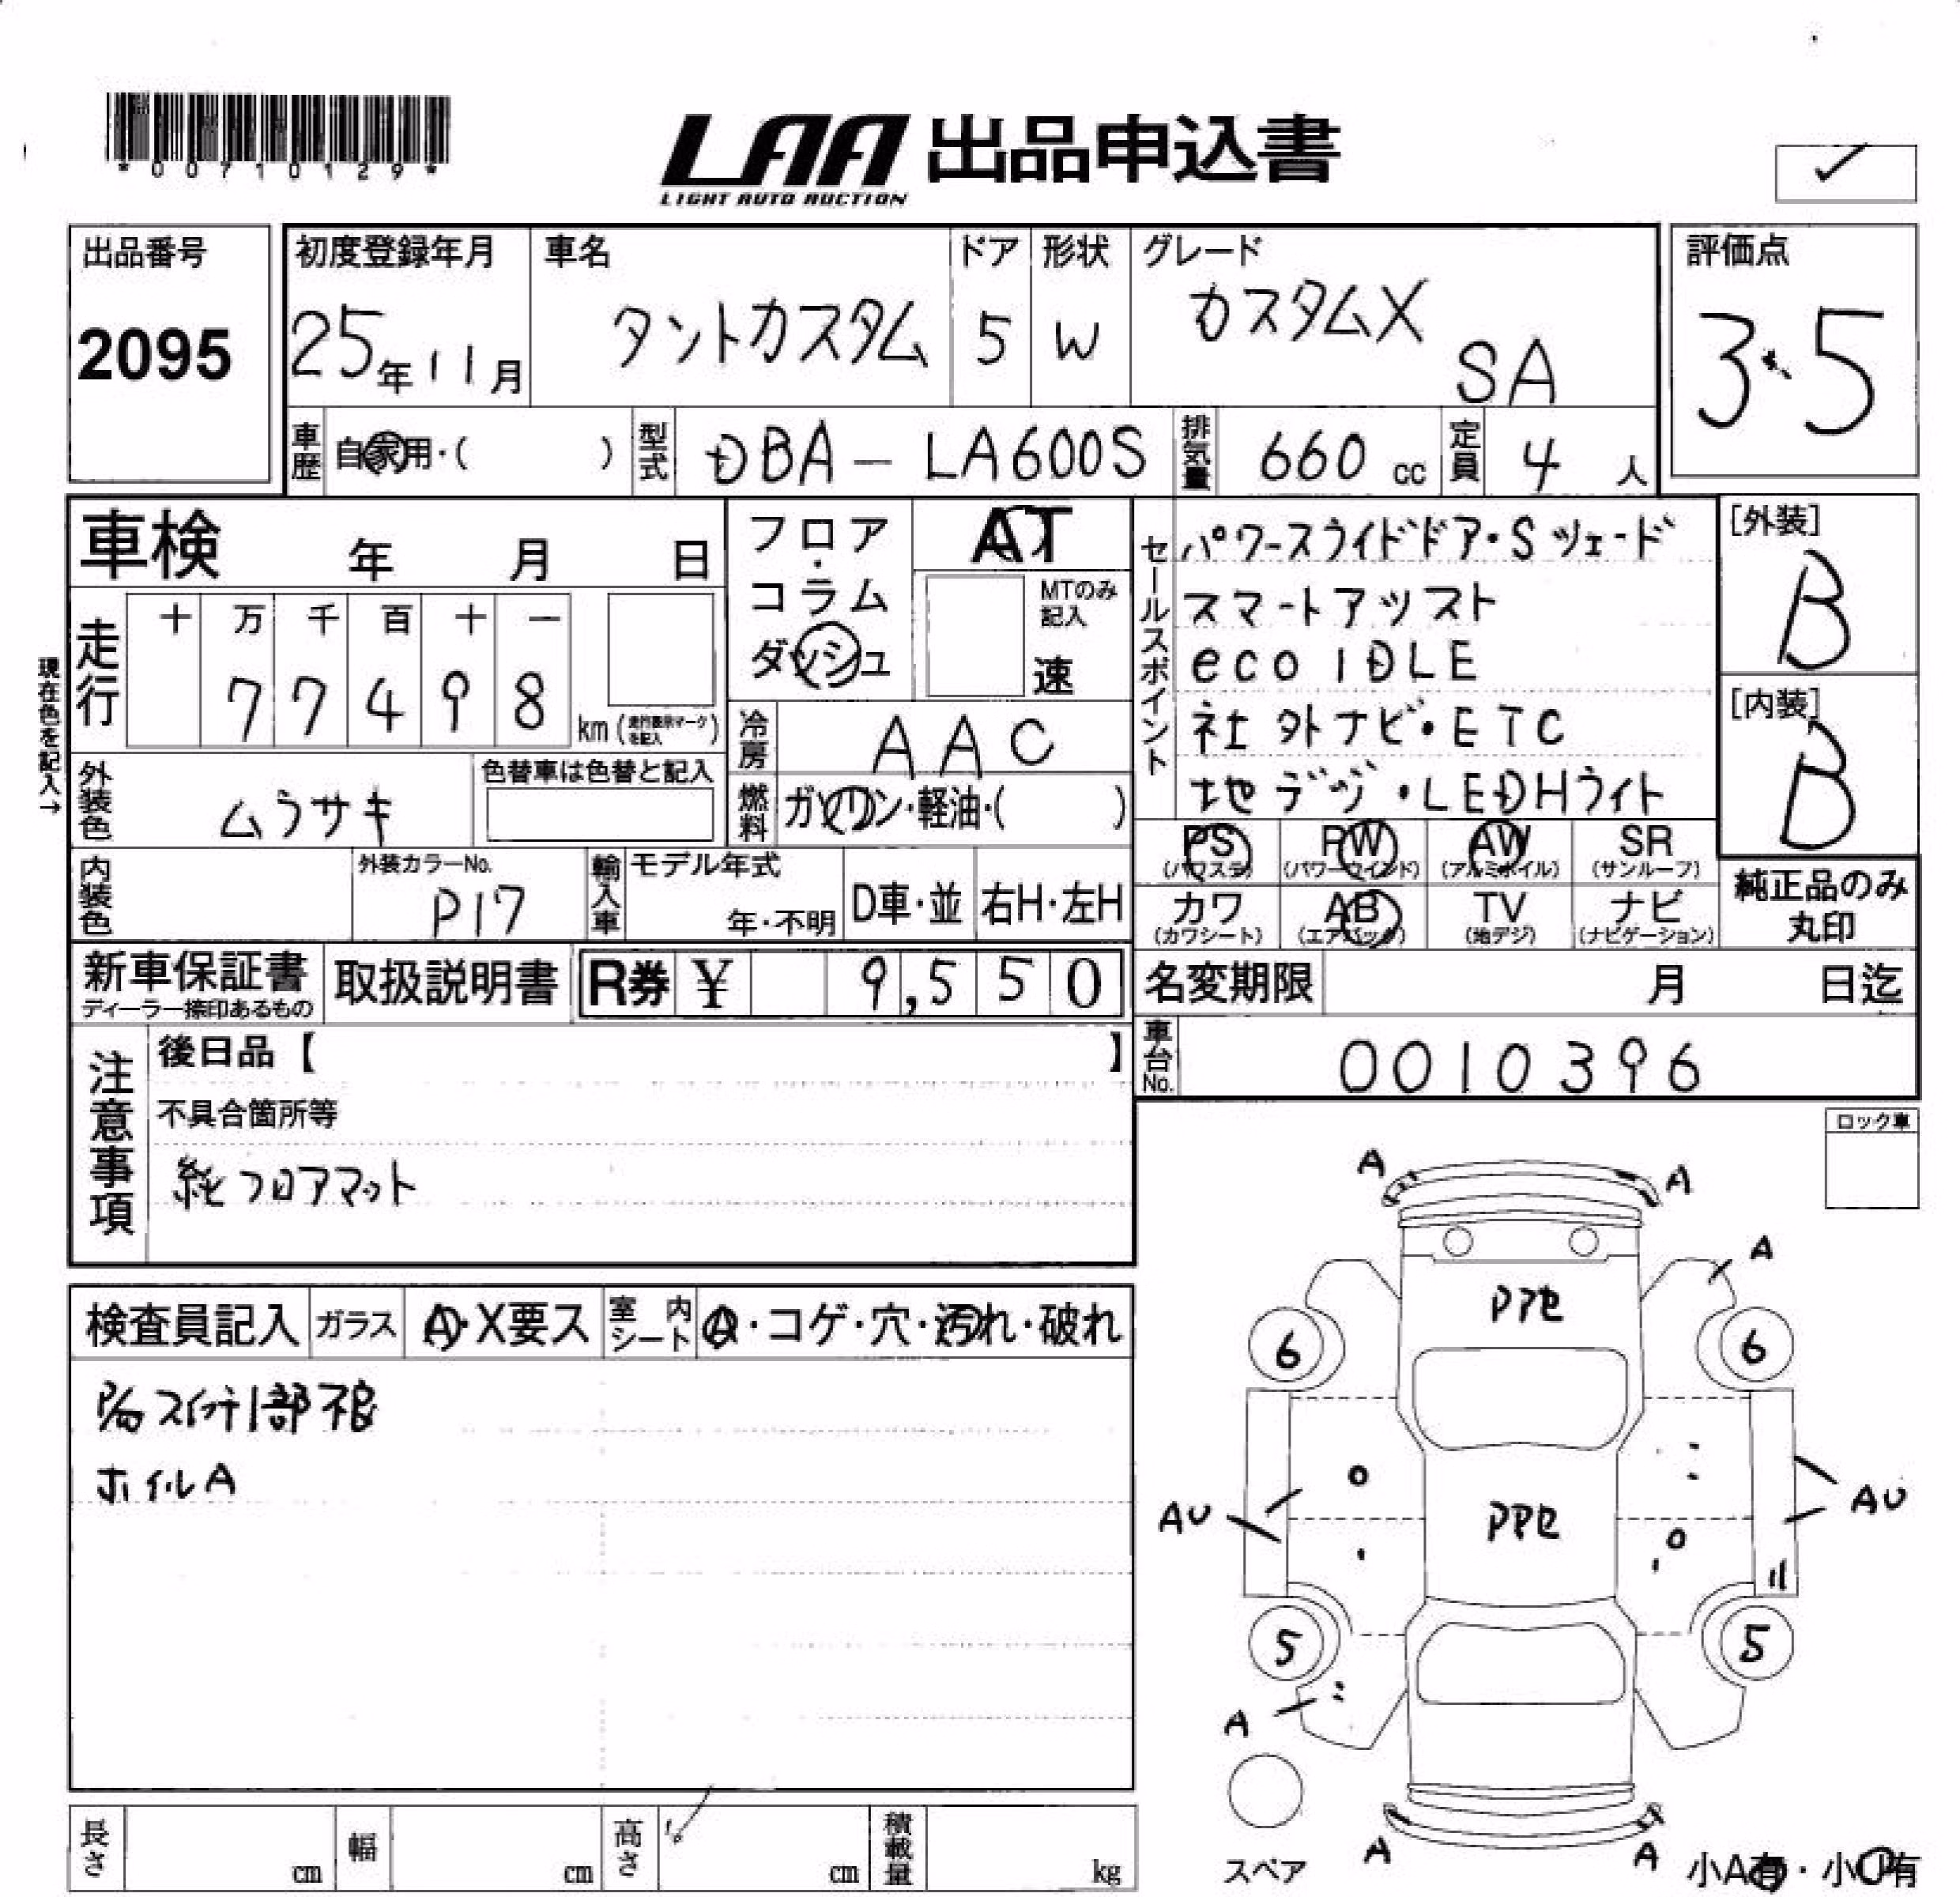 *00710129*
LAA 出品申込書
LIGHT AUTO AUCTION
出品番号
2095
初度登録年月
25年11月
車名
タントカスタム
ドア
5
形状
W
グレード
カスタムX
SA
評価点
3.5
車歴
自家用・( )
型式
DBA-LA600S
排気量
660 cc
定員
4 人
車検 年 月 日
フロア・コラム
ダッシュ
AT
MTのみ記入
速
セールスポイント
パワースライドドア・Sツェード
スマートアッスト
eco IDLE
社外ナビ・ETC
地デジ・LEDHライト
[外装]
B
[内装]
B
現在色を記入→
走行
十 万 千 百 十 一
7 7 4 9 8
km (走行表示マークを記入)
冷房
AAC
外装色
ムラサキ
色替車は色替と記入
燃料
ガソリン・軽油・( )
内装色
外装カラーNo.
P17
輸入車
モデル年式
年・不明
D車・並
右H・左H
PS
(パワステ)
PW
(パワーウインド)
AW
(アルミホイル)
SR
(サンルーフ)
カワ
(カワシート)
AB
(エアバック)
TV
(地デジ)
ナビ
(ナビゲーション)
純正品のみ
丸印
新車保証書
ディーラー捺印あるもの
取扱説明書
R券 ¥ 9,550
名変期限 月 日迄
車台No.
0010396
注意事項
後日品【 】
不具合箇所等
純フロアマット
ロック車
検査員記入
ガラス
A・X要ス
室内シート
A・コゲ・穴・汚れ・破れ
スイッチ1部不良
ホイルA
A
A
A
6
6
AU
AU
5
5
A
A
A
スペア
小A有・小U有
長さ cm
幅 cm
高さ cm
積載量 kg